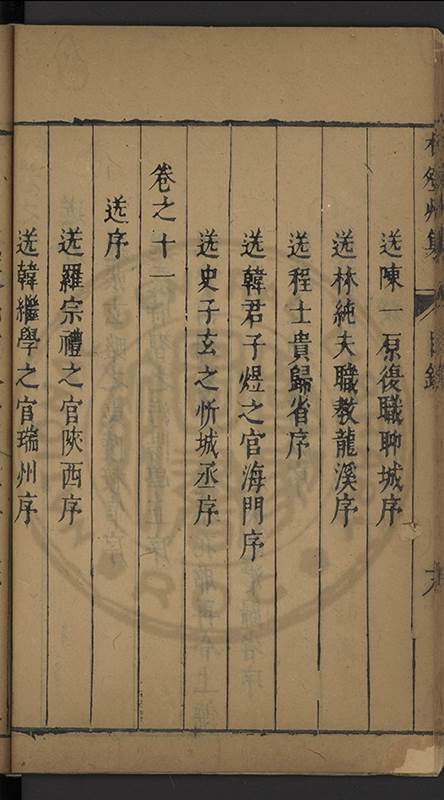 送陳一原復職聊城序
送林純夫職教龍溪序
送程士貴歸省序
送韓君子煜之官海門序
送史子玄之忻城丞序
卷之十一
送序
送羅宗禮之官陝西序
送韓繼學之官瑞州序